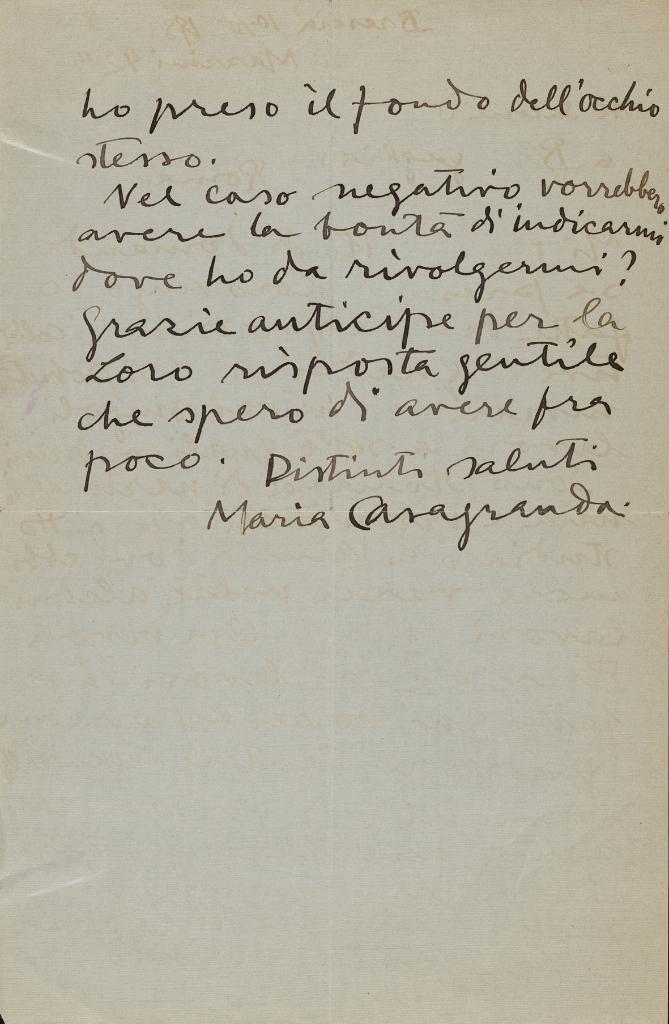 ho preso il fondo dell'occhio
stesso.
Nel caso negativo vorrebbero
avere la bontà di indicarmi
dove ho da rivolgermi?
Grazie anticipe per la
Loro risposta gentile
che spero di avere fra
poco. Distinti saluti
Maria Casagranda.